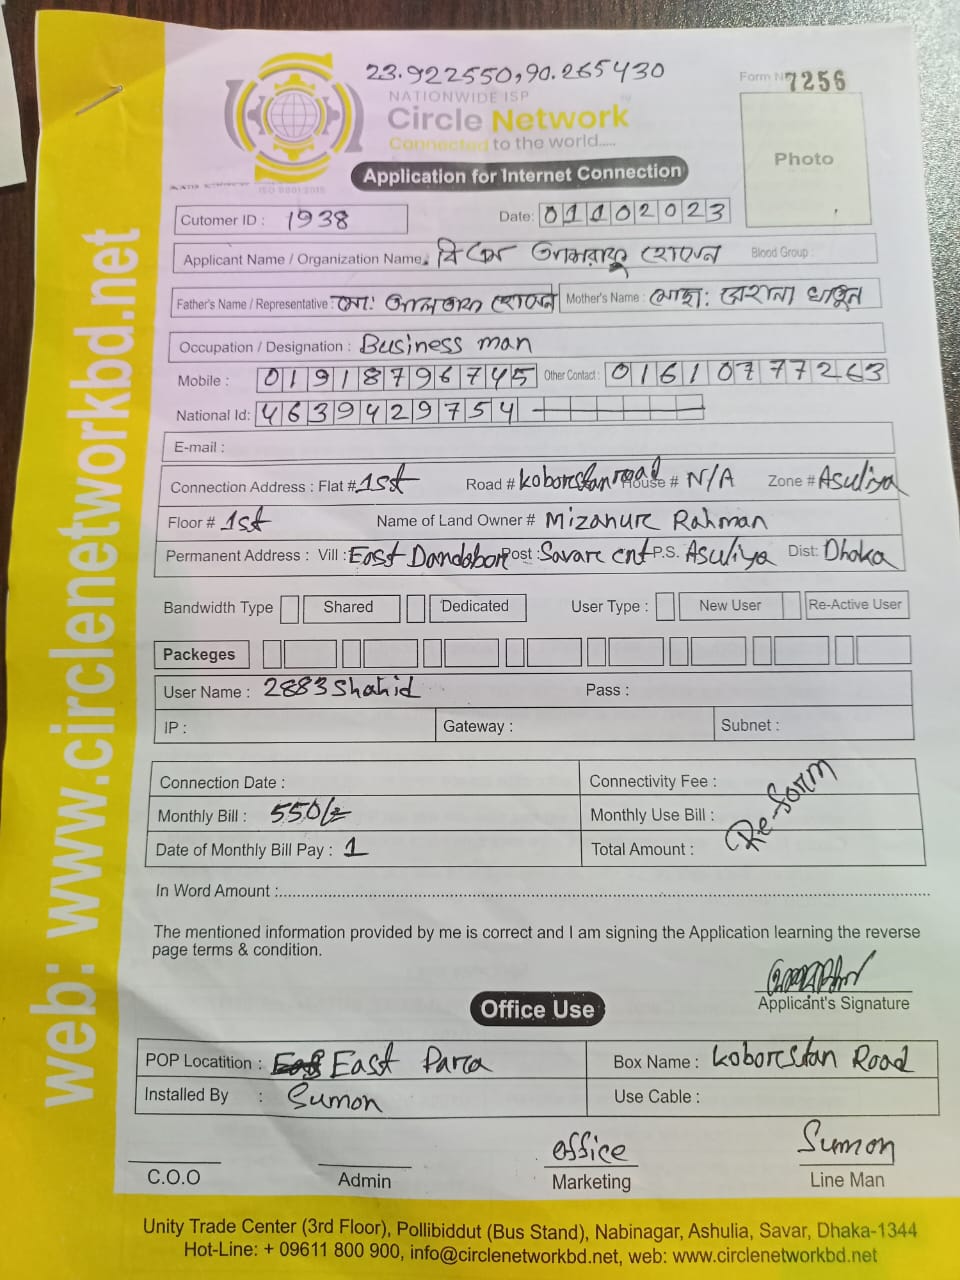 23.922550,90.265430
Form N 7256
NATIONWIDE ISP
Circle Network
Connected to the world.....
ISO 9001:2015
Photo
Application for Internet Connection
Cutomer ID : 1938
Date: 01102023
Applicant Name / Organization Name হোসেন Blood Group :
Father's Name / Representative : মো: আলতাফ হোসেন Mother's Name : মোছা: খাতুন
Occupation / Designation : Business man
Mobile : 01918796745 Other Contact : 01610777263
National Id: 4639429754
E-mail :
Connection Address : Flat # 1st Road # koborstan road House # N/A Zone # Asuliya
Floor # 1st Name of Land Owner # Mizanur Rahman
Permanent Address : Vill : East Dandabor Post : Savar cnt P.S. Asuliya Dist: Dhaka
Bandwidth Type Shared Dedicated User Type : New User Re-Active User
Packeges
User Name : 2883shahid Pass :
IP : Gateway : Subnet :
Connection Date : Connectivity Fee :
Monthly Bill : 550/= Monthly Use Bill :
Re-form
Date of Monthly Bill Pay : 1 Total Amount :
In Word Amount :
The mentioned information provided by me is correct and I am signing the Application learning the reverse
page terms & condition.
Applicant's Signature
Office Use
POP Locatition : East Para Box Name : koborstan Road
Installed By : Sumon Use Cable :
office Sumon
C.O.O Admin Marketing Line Man
Unity Trade Center (3rd Floor), Pollibiddut (Bus Stand), Nabinagar, Ashulia, Savar, Dhaka-1344
Hot-Line: + 09611 800 900, info@circlenetworkbd.net, web: www.circlenetworkbd.net
web: www.circlenetworkbd.net